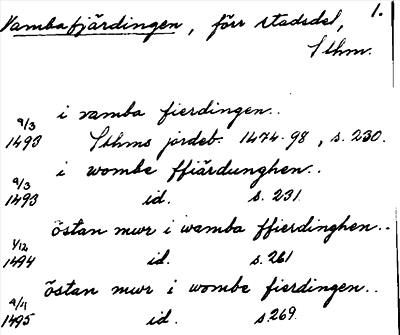 Vambafjärdingen, förr stadsdel, 1.
Sthm.
i vamba fierdingen..
9/3 1493 Sthms jordeb. 1474-98, s. 230.
i wombe ffiärdunghen..
9/3 1493 id. s. 231
östan mwr i wamba ffierdinghen..
1/12 1494 id. s. 261
östan mwr i wombe fierdingen..
9/11 1495 id. s. 269.